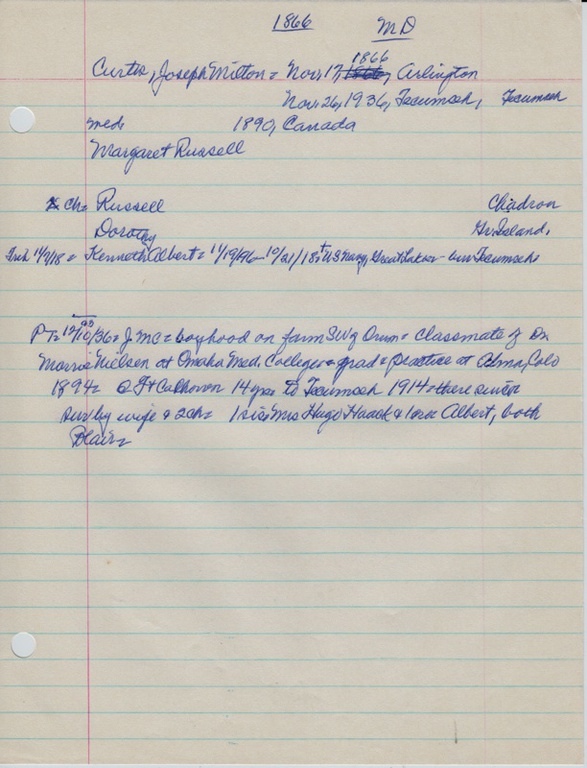 1866 MD
1866
Curtis, Joseph Milton = Nov, 17, 1866, Arlington
Nov. 26, 1936, Tecumseh, Tecumseh
med, 1890, Canada
Margaret Russell
x ch = Russell Chadron
Dorothy Gr. Island,
11/7/18 = Kenneth Albert = 11/19/96 - 10/21/18 = + US Navy, Great Lakes - bur Tecumseh =
PT = 12/10/36 = JMC = boyhood on farm SW of Orum = classmate of Dr
Morris Nielsen at Omaha Med. College = grad = practice at Alma, Colo
1894 = @ Ft Calhoun 14 yrs to Tecumseh 1914 = there since
sur by wife & 2 ch = 1 sis Mrs Hugo Haack & bro Albert, both
Blair =